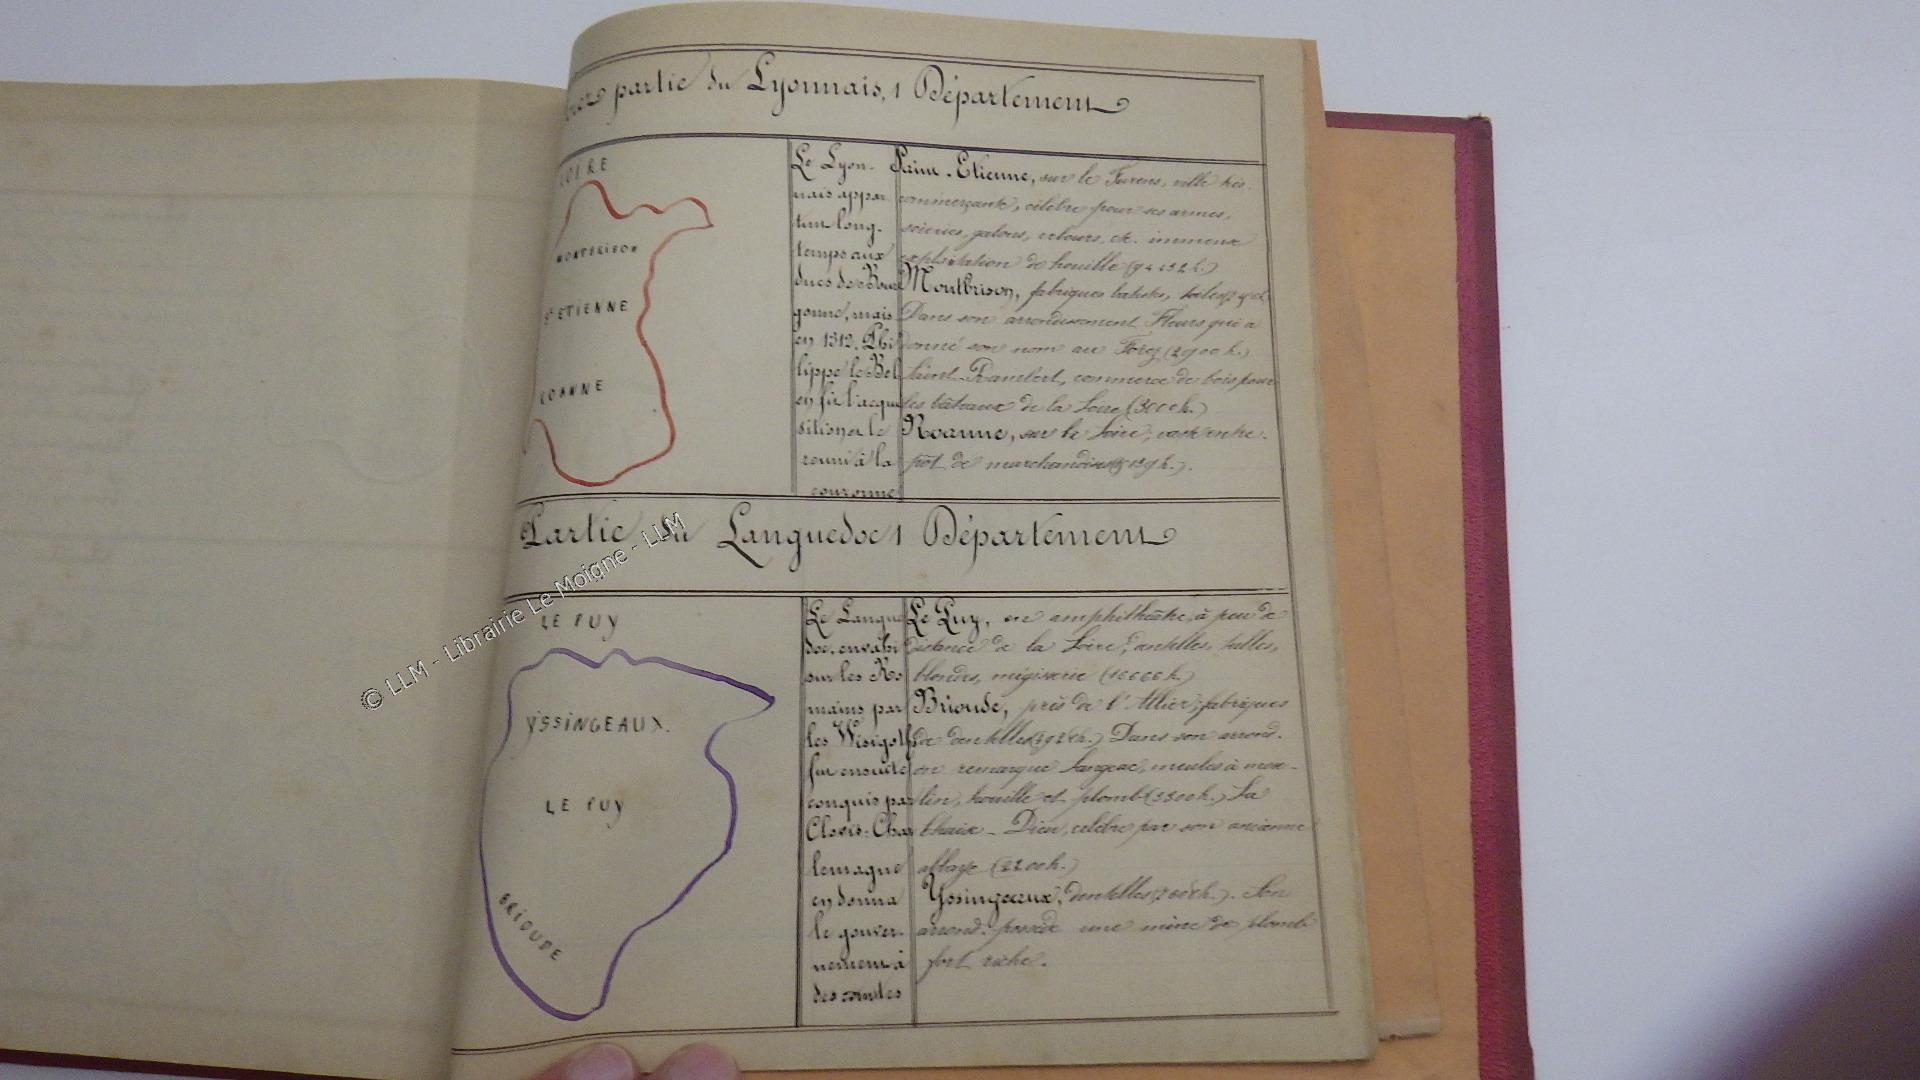 partie du Lyonnais, 1 Département
LOIRE
MONTBRISON
St ETIENNE
ROANNE
Le Lyon-
nais appar
tint long-
temps aux
ducs de Bour
gogne, mais
en 1312, Phi
lippe le Bel
en fit l'acqui
sition et le
reunit à la
couronne
Saint-Etienne, sur le Furens, ville très
commerçante, célèbre pour ses armes,
soieries, galons, velours, etc. immense
exploitation de houille
Montbrison, fabriques batistes, toiles
Dans son arrondissement Fleurs qui a
donné son nom au Forez (2900 h.)
Saint-Rambert, commerce de bois pour
les bâteaux de la Loire (3000 h.)
Roanne, sur la Loire, vaste entre-
pôt de marchandises
Partie du Languedoc 1 Département
LE PUY
YSSINGEAUX.
LE PUY
BRIOUDE
Le Langue
doc, envahi
sur les Ro
mains par
les Wisigoths
fut ensuite
conquis par
Clovis; Char
lemagne
en donna
le gouver-
nement à
des comtes
Le Puy, en amphithéâtre, à peu de
distance de la Loire; dentelles, tulles,
blondes, mégisserie
Brioude, près de l'Allier; fabriques
de dentelles Dans son arrond.
on remarque Langeac, meules à mou-
lin, houille et plomb La
Chaise-Dieu, célèbre par son ancienne
abbaye
Yssingeaux, dentelles Son
arrond. possède une mine de plomb
fort riche.
© LLM - Librairie Le Moigne - LLM